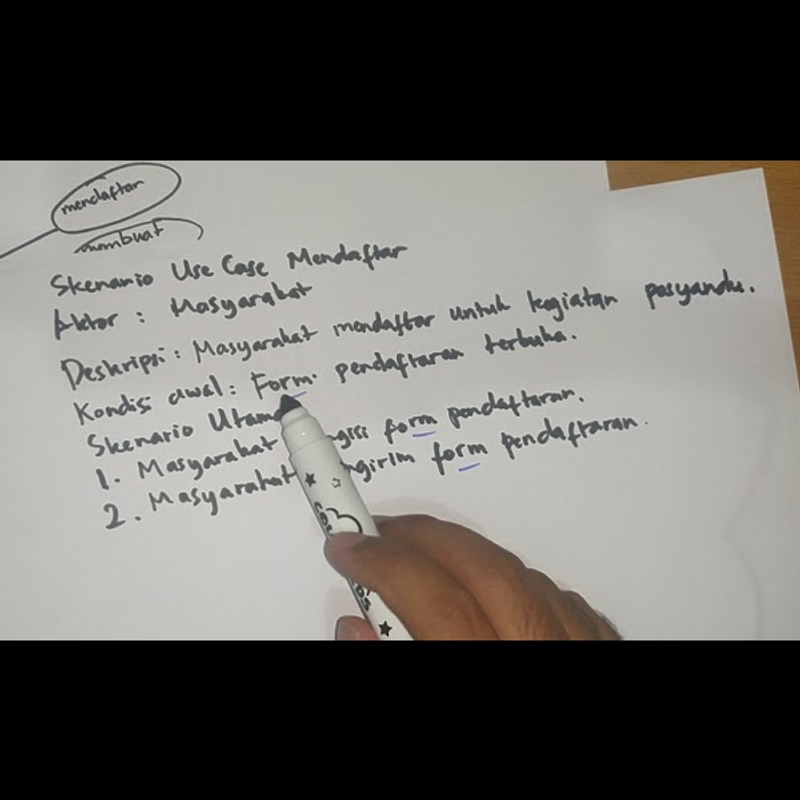 mendaftar
membuat
Skenario Use Case Mendaftar
Aktor : Masyarakat
Deskripsi : Masyarakat mendaftar untuk kegiatan posyandu.
Kondisi awal : Form pendaftaran terbuka.
Skenario Utama
1. Masyarakat ngisi form pendaftaran.
2. Masyarakat ngirim form pendaftaran.